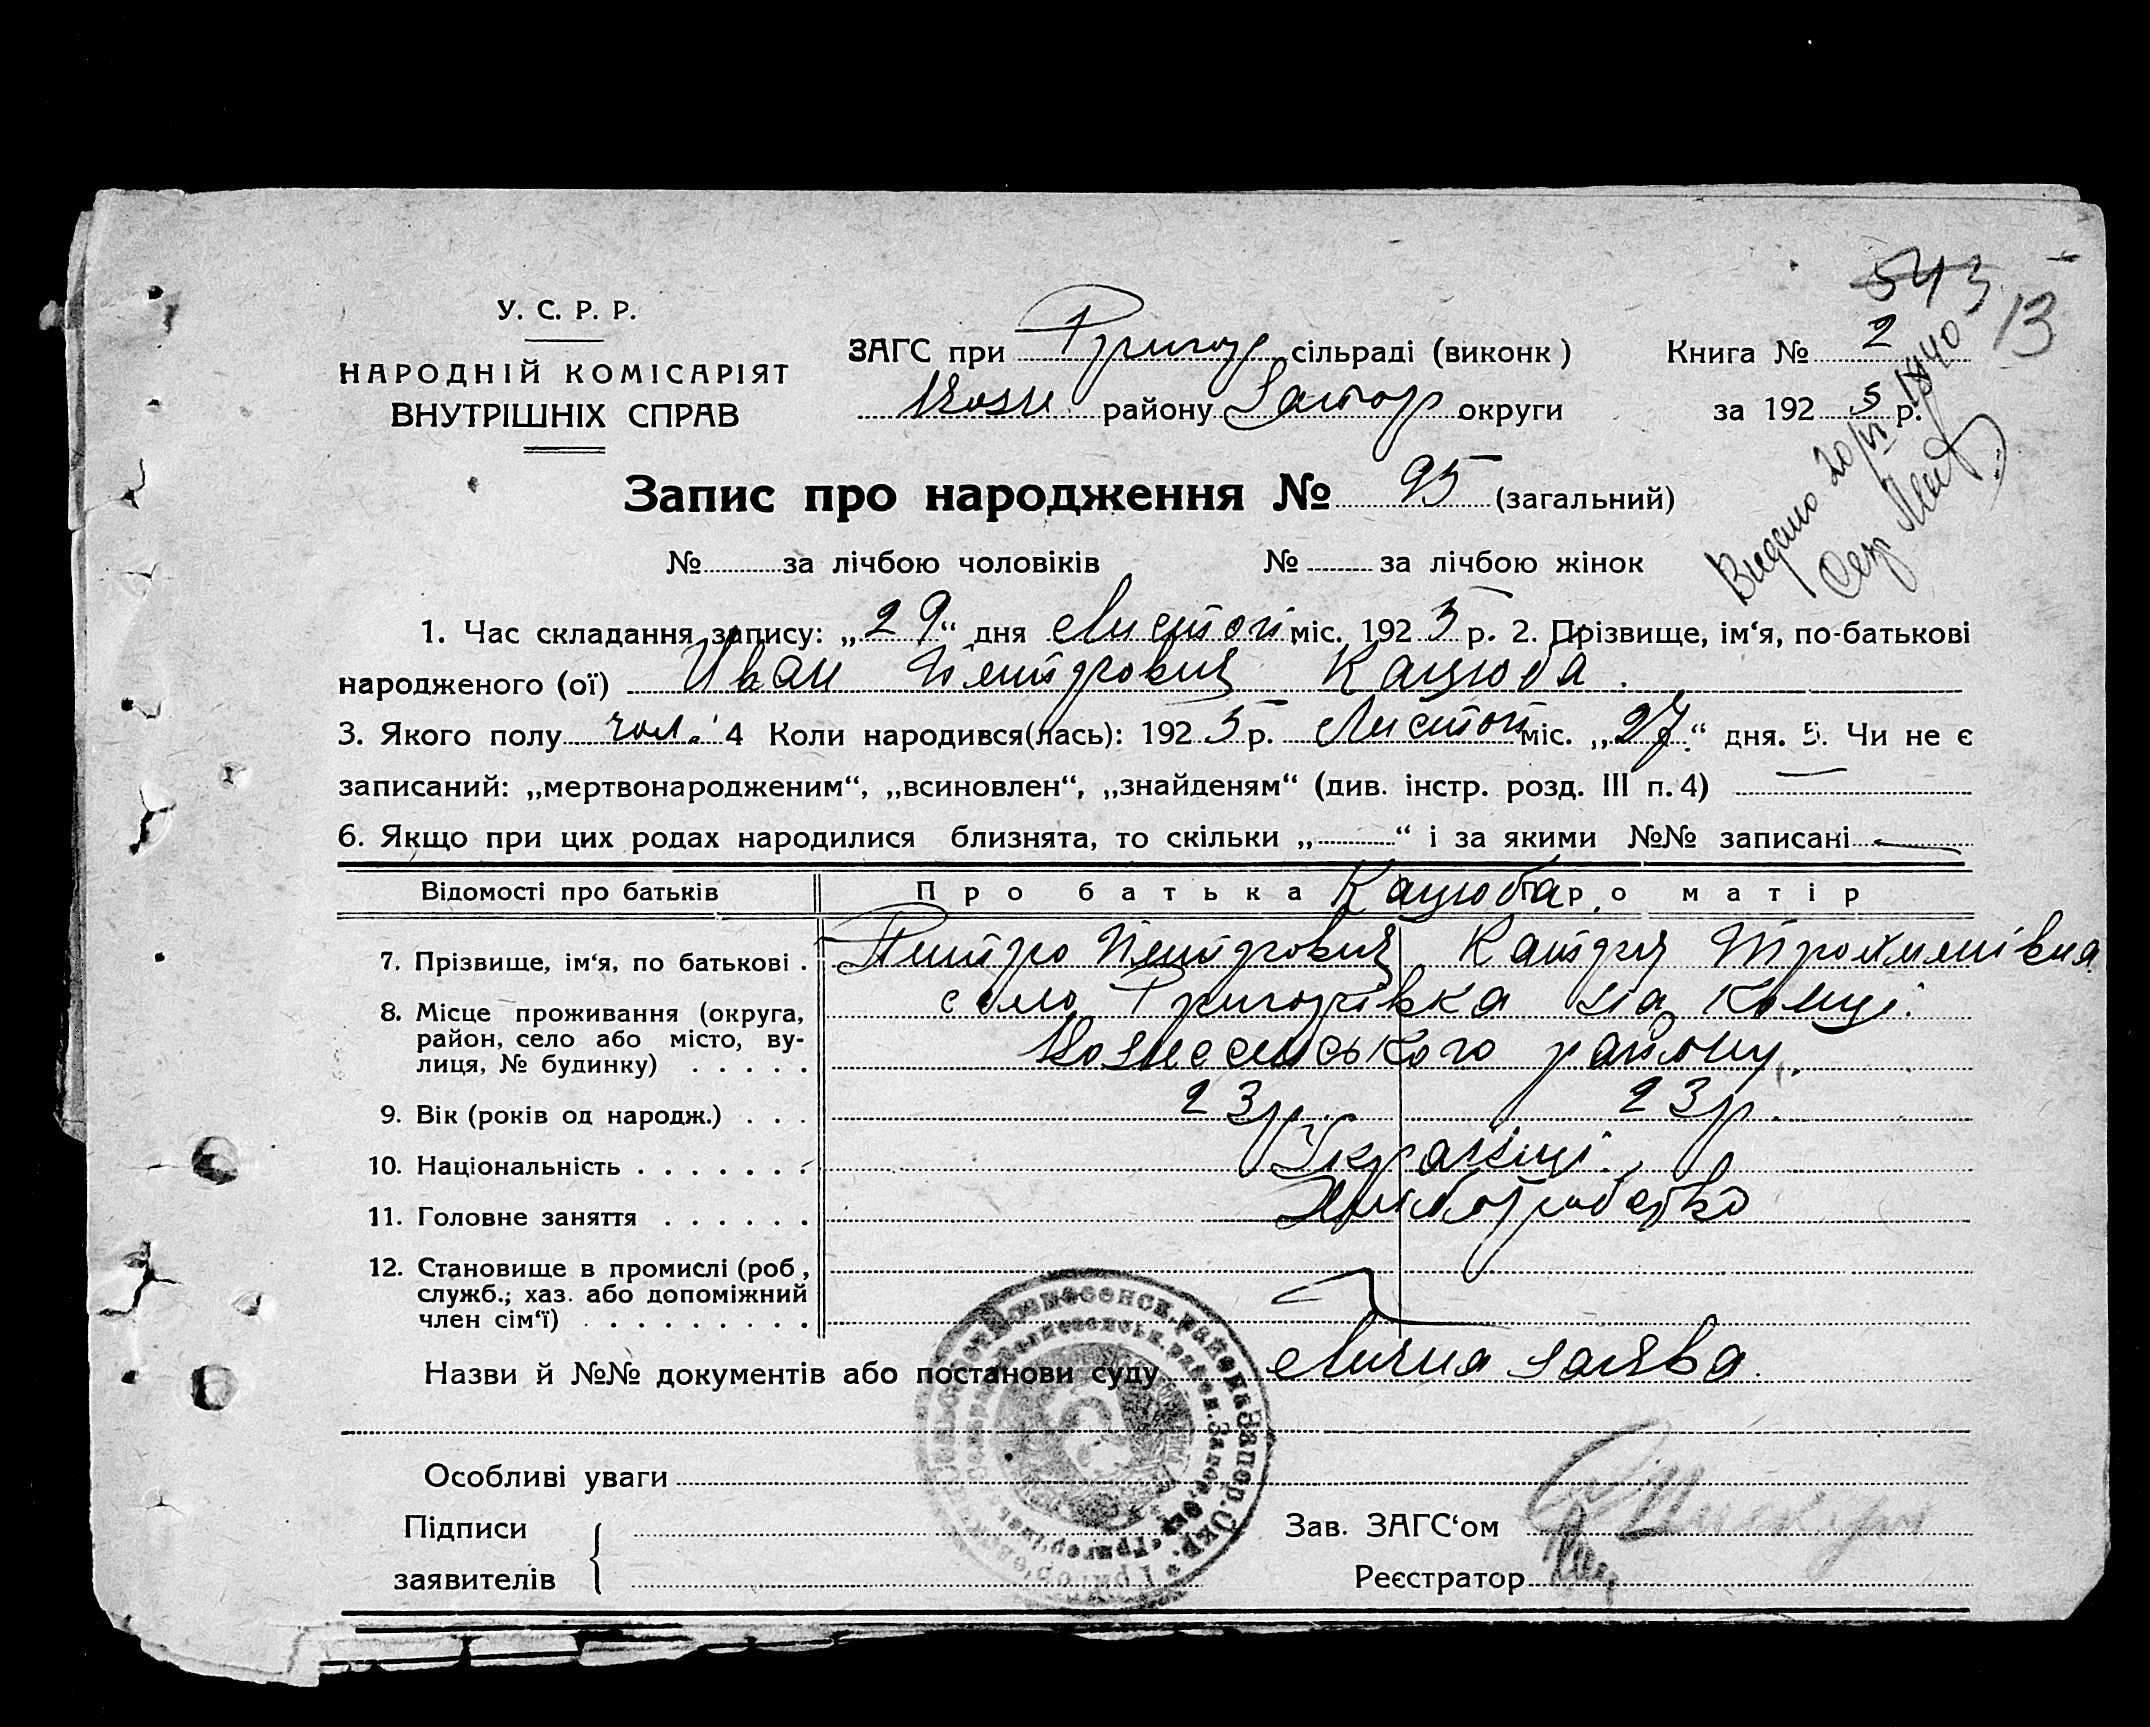 543
13
У. С. Р. Р.
НАРОДНІЙ КОМІСАРІЯТ
ВНУТРІШНІХ СПРАВ
ЗАГС при Григор сільраді (виконк)
Возн. району Запор округи
Книга № 2
за 192 5 р.
Видано 20/VI 1940
Секр
Запис про народження № 95 (загальний)
№ за лічбою чоловіків № за лічбою жінок
1. Час складання запису: „29“ дня Листоп міс. 192 5 р. 2. Прізвище, ім‘я, по-батькові
народженого (ої) Иван Петрович Кацюба.
3. Якого полу чол. 4 Коли народився(лась): 192 5 р. Листоп міс. „27“ дня. 5. Чи не є
записаний: „мертвонародженим“, „всиновлен“, „знайденям“ (див. інстр. розд. III п. 4) —
6. Якщо при цих родах народилися близнята, то скільки „ “ і за якими №№ записані —
Відомості про батьків Про батька Кацюба. Про матір
7. Прізвище, ім‘я, по батькові . Петро Петрович Катря Трохимівна
8. Місце проживання (округа, район, село або місто, вулиця, № будинку) . . . . . село Григорівка на Конці.
Вознесенського району.
9. Вік (років од народж.) . . . 23 р. 23 р.
10. Національність . . . . . . . Українці.
11. Головне заняття . . . . . . Хліборобство
12. Становище в промислі (роб, служб.; хаз. або допоміжний член сім‘ї) . . . . . . . . .
Назви й №№ документів або постанови суду Лична заява.
Особливі уваги
Підписи
заявителів
Зав. ЗАГС‘ом
Реєстратор